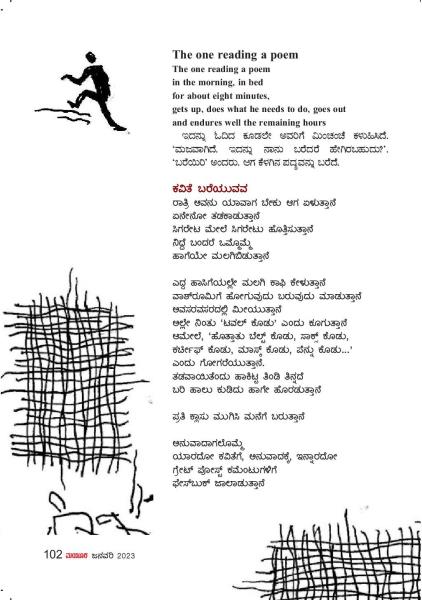 The one reading a poem
The one reading a poem
in the morning, in bed
for about eight minutes,
gets up, does what he needs to do, goes out
and endures well the remaining hours
ಇದನ್ನು ಓದಿದ ಕೂಡಲೇ ಅವರಿಗೆ ಮಿಂಚಂಚೆ ಕಳುಹಿಸಿದೆ.
‘ಮಜವಾಗಿದೆ. ಇದನ್ನು ನಾನು ಬರೆದರೆ ಹೇಗಿರಬಹುದು?’.
‘ಬರೆಯಿರಿ’ ಅಂದರು. ಆಗ ಕೆಳಗಿನ ಪದ್ಯವನ್ನು ಬರೆದೆ.
ಕವಿತೆ ಬರೆಯುವವ
ರಾತ್ರಿ ಅವನು ಯಾವಾಗ ಬೇಕು ಆಗ ಏಳುತ್ತಾನೆ
ಏನೇನೋ ತಡಕಾಡುತ್ತಾನೆ
ಸಿಗರೇಟ ಮೇಲೆ ಸಿಗರೇಟು ಹೊತ್ತಿಸುತ್ತಾನೆ
ನಿದ್ದೆ ಬಂದರೆ ಒಮ್ಮೊಮ್ಮೆ
ಹಾಗೆಯೇ ಮಲಗಿಬಿಡುತ್ತಾನೆ
ಎದ್ದ ಹಾಸಿಗೆಯಲ್ಲೇ ಮಲಗಿ ಕಾಫಿ ಕೇಳುತ್ತಾನೆ
ವಾಶ್‌ರೂಮಿಗೆ ಹೋಗುವುದು ಬರುವುದು ಮಾಡುತ್ತಾನೆ
ಅವಸರವಸರದಲ್ಲಿ ಮೀಯುತ್ತಾನೆ
ಅಲ್ಲೇ ನಿಂತು ‘ಟವಲ್ ಕೊಡು’ ಎಂದು ಕೂಗುತ್ತಾನೆ
ಆಮೇಲೆ, ‘ಹೊತ್ತಾತು ಬೆಲ್ಟ್ ಕೊಡು, ಸಾಕ್ಸ್ ಕೊಡು,
ಕರ್ಚೀಫ್ ಕೊಡು, ಮಾಸ್ಕ್ ಕೊಡು, ಪೆನ್ನು ಕೊಡು...’
ಎಂದು ಗೋಗರೆಯುತ್ತಾನೆ.
ತಡವಾಯಿತೆಂದು ಹಾಕಿಟ್ಟ ತಿಂಡಿ ತಿನ್ನದೆ
ಬರಿ ಹಾಲು ಕುಡಿದು ಹಾಗೇ ಹೊರಡುತ್ತಾನೆ
ಪ್ರತಿ ಕ್ಲಾಸು ಮುಗಿಸಿ ಮನೆಗೆ ಬರುತ್ತಾನೆ
ಅನುವಾದಾಗಲೊಮ್ಮೆ
ಯಾರದೋ ಕವಿತೆಗೆ, ಅನುವಾದಕ್ಕೆ, ಇನ್ನಾರದೋ
ಗ್ರೇಟ್ ಪೋಸ್ಟ್ ಕಮೆಂಟುಗಳಿಗೆ
ಫೇಸ್‌ಬುಕ್ ಜಾಲಾಡುತ್ತಾನೆ
102 ಮಯೂರ ಜನವರಿ 2023